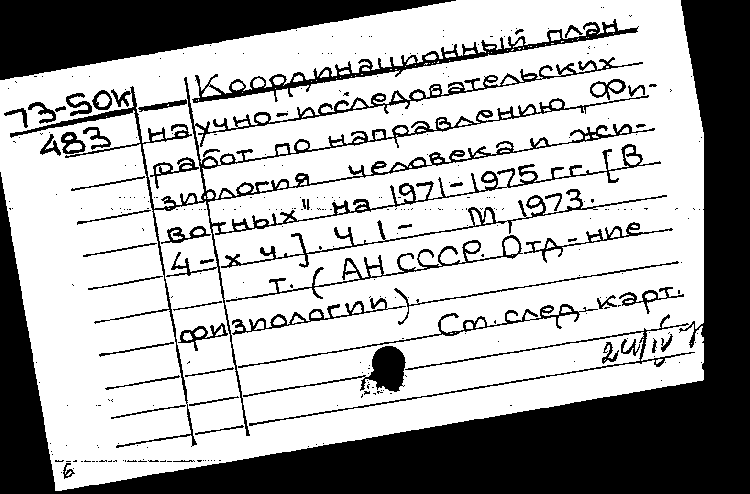 73-50к Координационный план
483 научно-исследовательских
работ по направлению „Фи-
зиология человека и жи-
вотных" на 1971-1975 гг. [В
4-х ч.]. Ч. 1- М, 1973.
т. (АН СССР. Отд-ние
физиологии).
См. след. карт.
24/IV
6